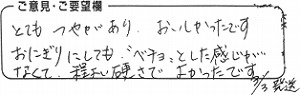 ご意見・ご要望欄
とても つやがあり、おいしかったです
おにぎりにしても、ベチョっとした感じが
なくて、程よい硬さで よかったです。
3/3 発送